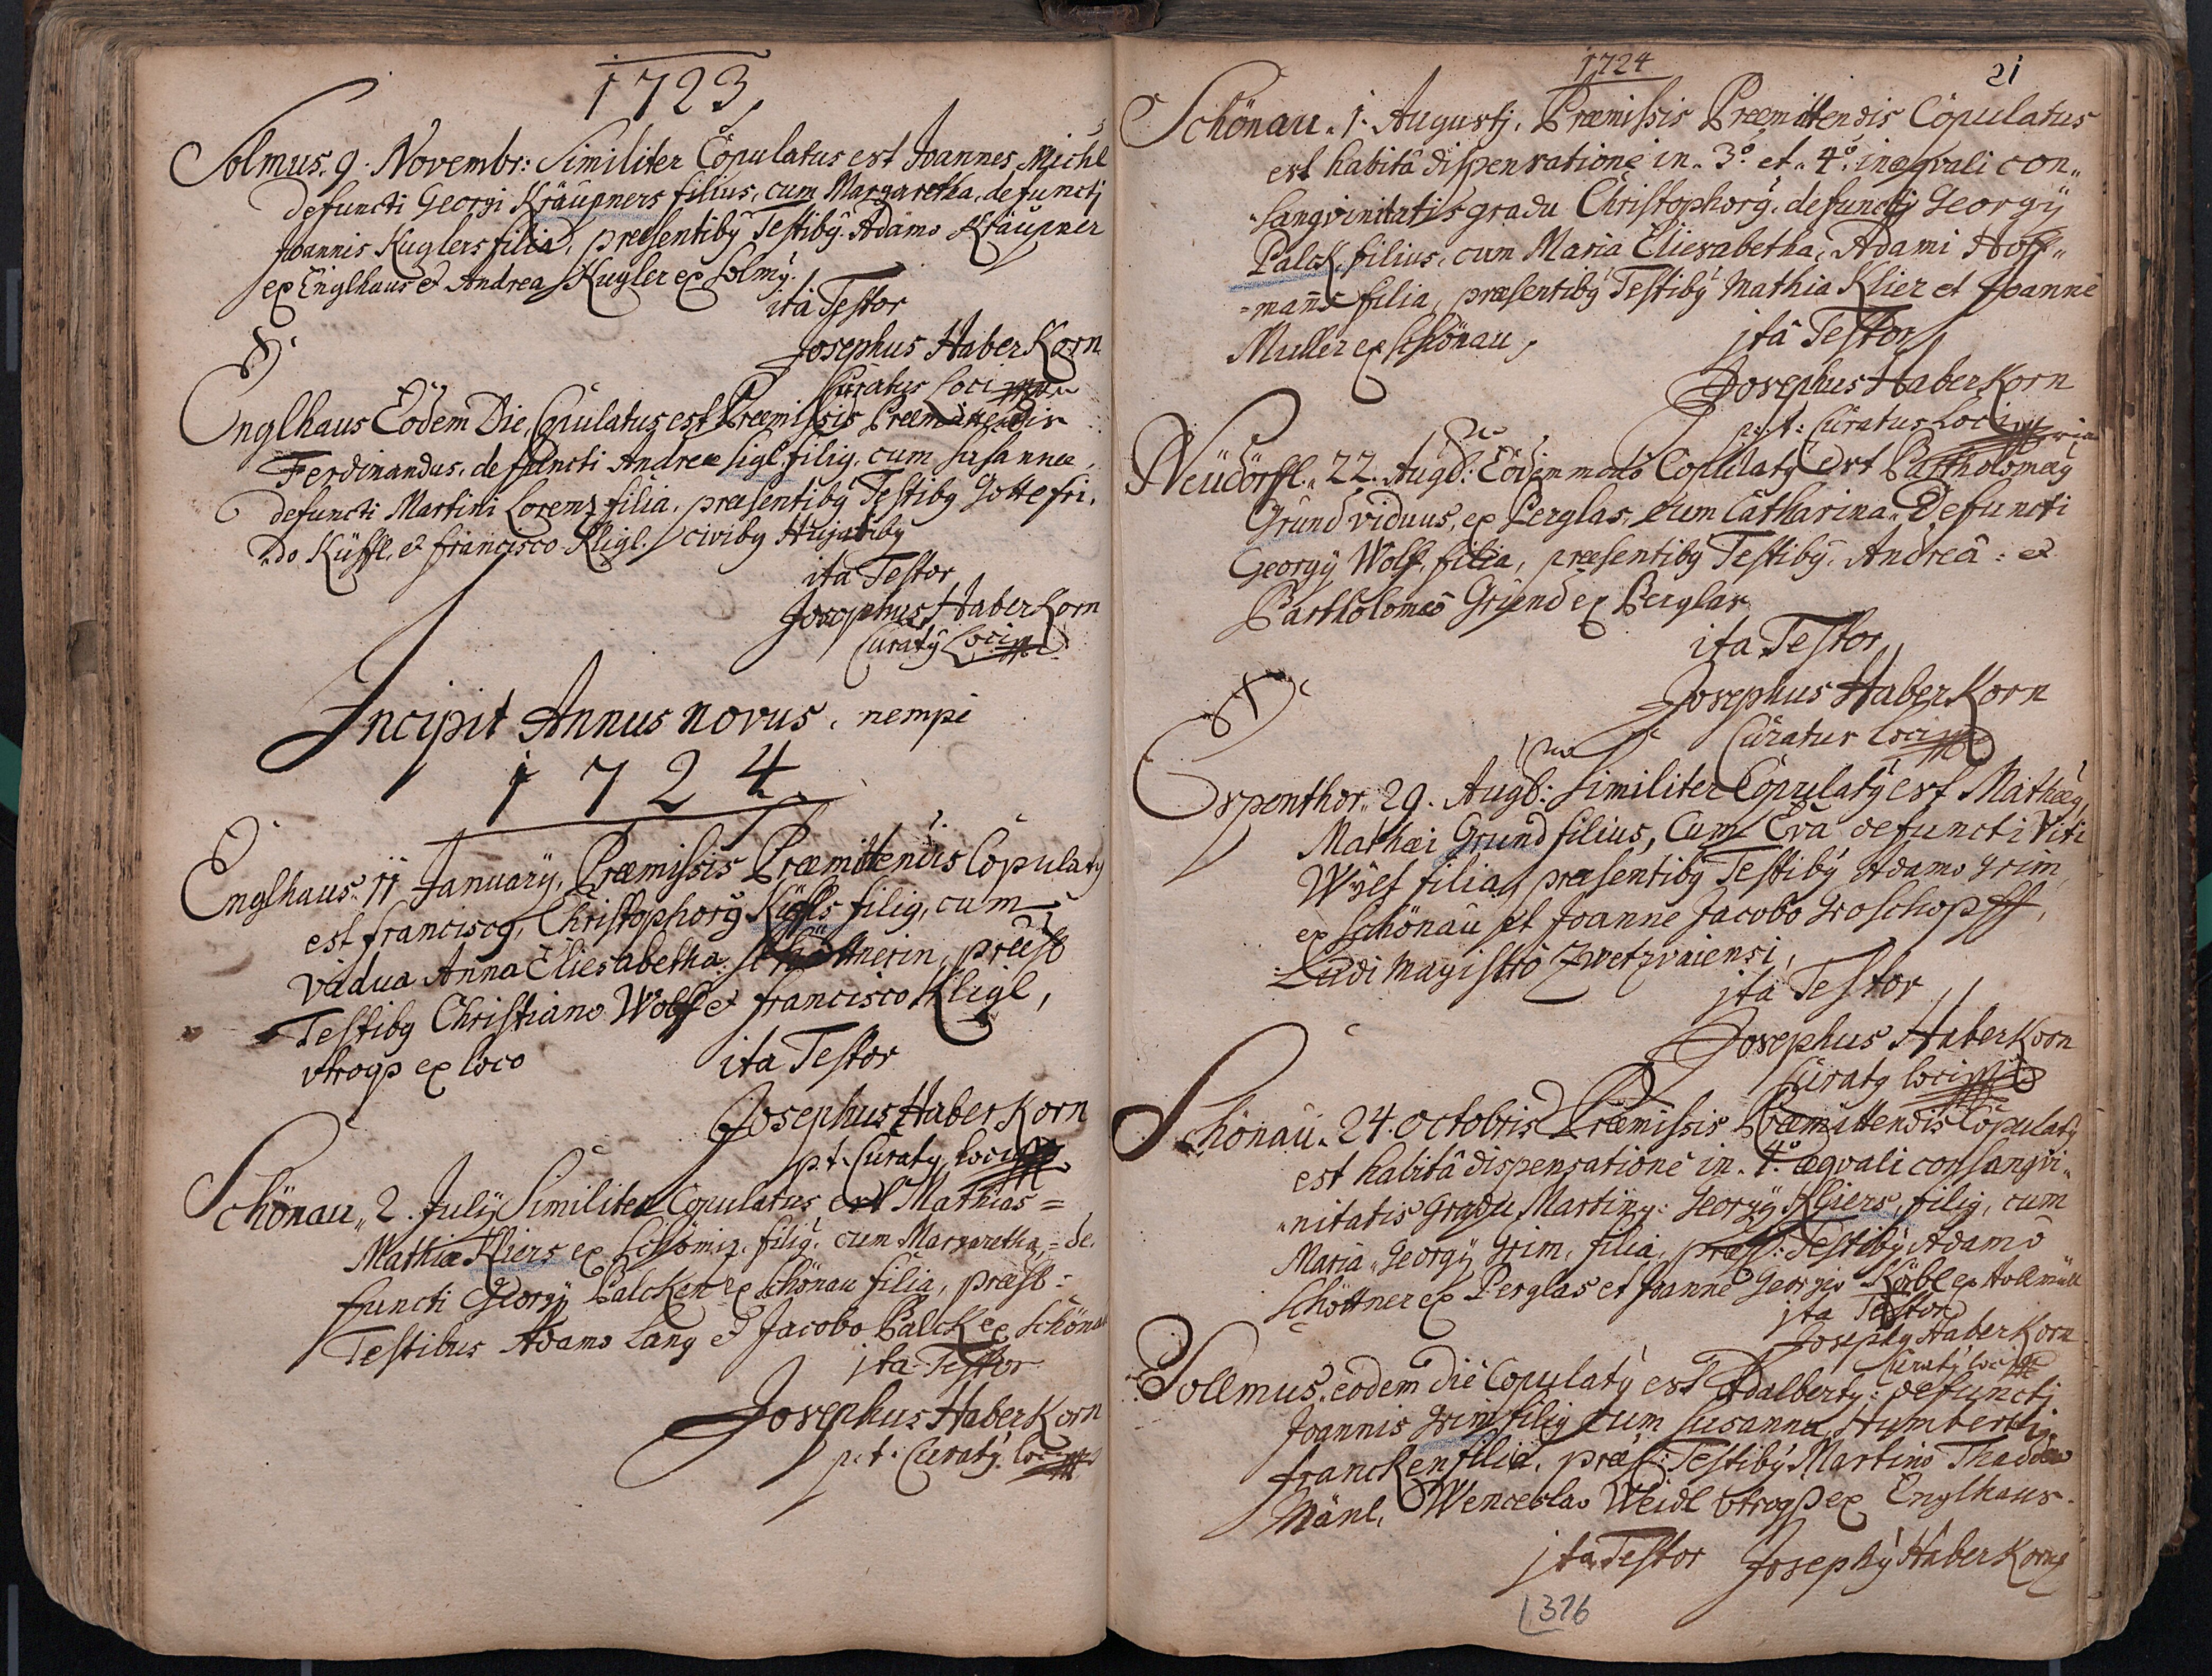 1723
Solmus. 9. Novembr: Similiter Copulatus est Joannes Michl
defuncti Georgi Kräupners filius, cum Margaretha, defuncti
Joannis Kuglers filia, præsentibꝰ Testibꝰ Adamo Kräupner
ex Englhaus et Andrea Kugler ex Solmꝰ.
ita Testor
Josephus HaberKorn
Curatus Loci
Englhaus Eodem Die, Copulatus est Præmissis Præmittendis
Ferdinandus, defuncti Andreæ Sigl filiꝰ, cum Susanna,
defuncti Martini Lorenz filia, præsentibꝰ Testibꝰ Gottefri„
„do Küffl, et Francisco Kligl, civibꝰ Hujatibꝰ
ita Testor
Josephus HaberKorn
Curatꝰ Loci
Incipit Annus novus, nempe
1724
Englhaus. 11 Januarÿ, Præmissis Præmittendis Copulatꝰ
est Franciscꝰ, Christophorꝰ Küffls filiꝰ, cum
vidua Anna Eliesabetha Schöttnerin, præst
Testibꝰ Christiano Wolff et Francisco Kligl,
utroqꝫ ex loco
ita Testor
Josephus HaberKorn
p. t. Curatꝰ loci
Schönau„ 2. Julÿ Similiter Copulatus est Mathias =
Mathiæ Kliers ex Schömiz, filiꝰ, cum Margaretha, = de„
functi Georgÿ Palcken ex Schönau filia, præst:
Testibus Adamo Lang et Jacobo Palck ex Schönau
ita Testor
Josephus HaberKorn
p. t. Curatꝰ loci
1724
21
Schönau„ 1. Augusti, Præmissis Præmittendis Copulatus
est habitâ dispensatione in„ 3º et„ 4º inæqvali con„
„sangvinitatis gradu Christophorꝰ, defuncti Georgÿ
Palck, filius, cum Maria Eliesabetha, Adami Hoff„
=manns filia, præsentibꝰ Testibꝰ Mathia Klier et Joanne
Muller ex Schönau,
ita Testor
Josephus HaberKorn
p. t. Curatus Loci
Neüdörffl„ 22. Augs: Eodem modo Copulatꝰ est Bartholomæꝰ
Grund viduus, ex Perglas, cum Catharina„ Defuncti
Georgÿ Wolff, filia, præsentibꝰ Testibꝰ, Andreâ: et
Bartholomeo Grund ex Perglas
ita Testor
Josephus HaberKorn
Curatus loci
Espenthor„ 29. Augs: Similiter Copulatꝰ est Mathæꝰ,
Mathæi Grund filius, Cum Eva defuncti Viti
Wÿlf filia, præsentibꝰ Testibꝰ Adamo Grim
ex Schönau et Joanne Jacobo Groschopff,
Ludi Magistro Zwetzvaiensi,
ita Testor
Josephus HaberKorn
Curatꝰ loci
Schönau„ 24. Octobris Præmissis Præmittendis Copulatꝰ
est habitâ dispensatione in„ 4º æqvali consangvi„
„nitatis Gradu Martinꝰ: Georgÿ Kliers, filiꝰ, cum
Maria„ Georgÿ Grim, filia, præst: Testibꝰ Adamo
Schöttner ex Perglas et Joanne Georgio Körbl ex Hollmüll
ita Testor
Josephꝰ HaberKorn
Curatꝰ loci
Sollmus, eodem die Copulatꝰ est Adalbertꝰ: defuncti
Joannis Grim filiꝰ cum Susanna, Humberti
Francken filia, præst: Testibꝰ Martino Thaddeo
Mänl, Wenceslao Weidl utroqꝫ ex Englhaus.
ita Testor Josephꝰ HaberKorn
316